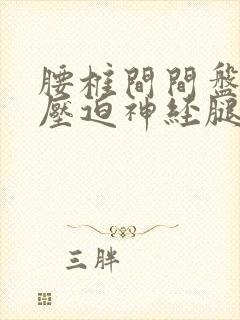 腰柱間間盤
壓迫神经腿
三胖